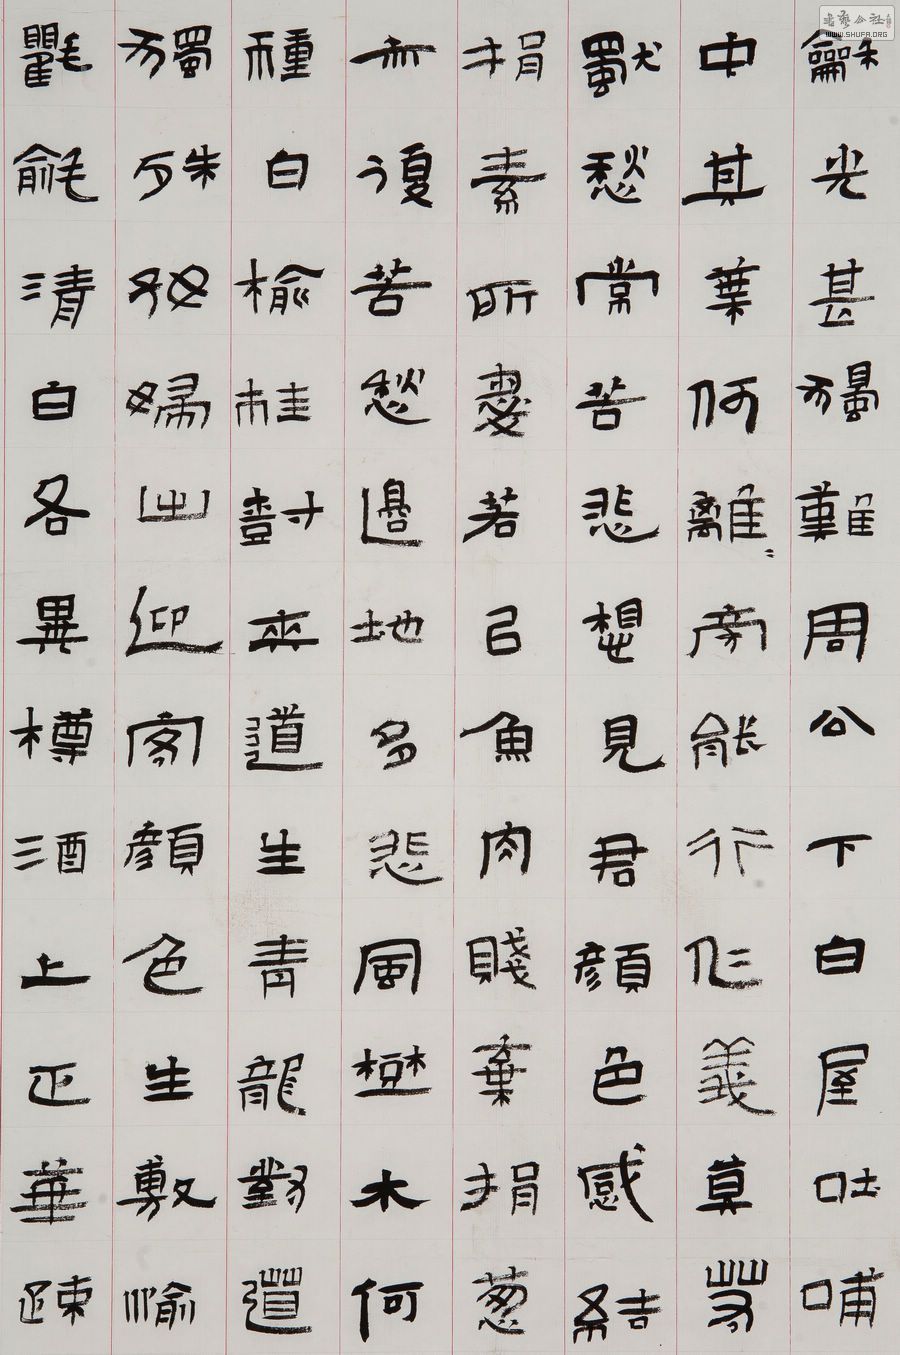 龢光甚獨難周公下白屋吐哺
中其葉何離離傍能行仁義莫若
獸愁常苦悲想見君顏色感結
捐素所愛若已魚肉賤棄捐葱
亦復苦愁邊地多悲風樊木何
種白榆桂樹夾道生青龍對道
獨殊好婦出迎客顏色生敷愉
氍毹清白各異樽酒上正華疎
WWW.SHUFA.ORG